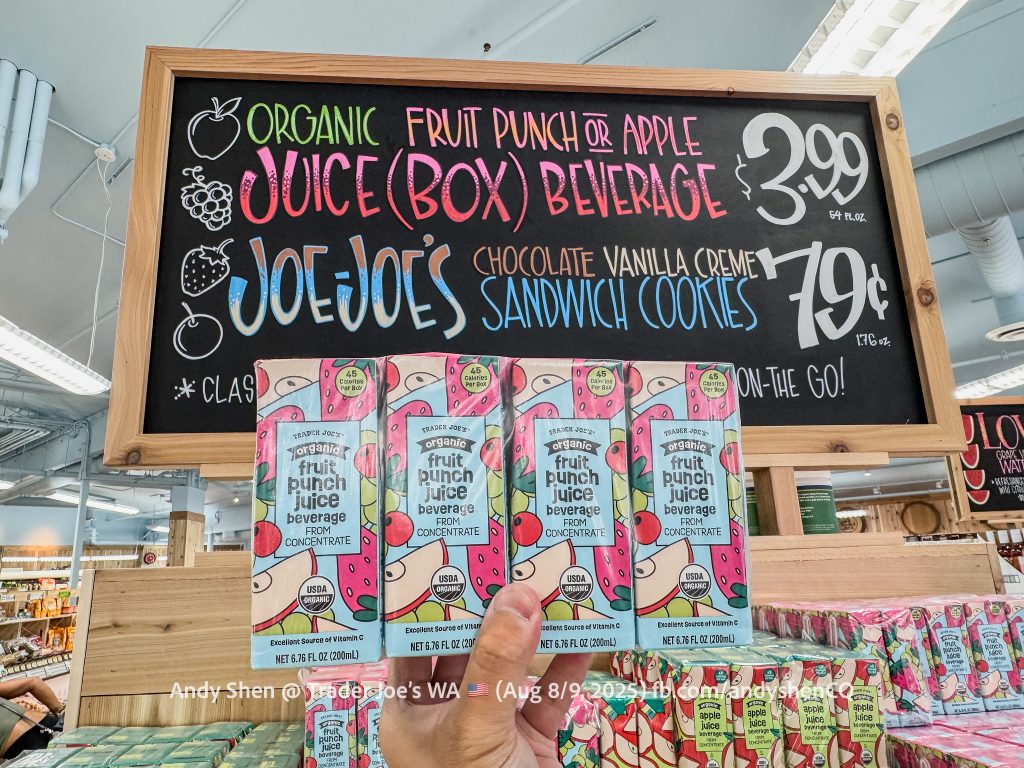 ORGANIC FRUIT PUNCH OR APPLE
JUICE (BOX) BEVERAGE
$3.99
54 FL OZ.
JOE-JOE'S CHOCOLATE VANILLA CREME
SANDWICH COOKIES
79¢
1.76 OZ.
* CLAS
ON-THE GO!
45 Calories Per Box
45 Calories Per Box
45 Calories Per Box
45 Calories Per Box
TRADER JOE'S
organic
fruit
punch
juice
beverage
FROM
CONCENTRATE
USDA
ORGANIC
Excellent Source of Vitamin C
NET 6.76 FL OZ (200mL)
TRADER JOE'S
organic
fruit
punch
juice
beverage
FROM
CONCENTRATE
USDA
ORGANIC
Excellent Source of Vitamin
NET 6.76 FL OZ (20
TRADER JOE'S
organic
fruit
punch
juice
beverage
FROM
CONCENTRATE
USDA
ORGANIC
Excellent Source of Vitamin C
NET 6.76 FL OZ (200mL)
TRADER JOE'S
organic
fruit
punch
juice
beverage
FROM
CONCENTRATE
USDA
ORGANIC
Excellent Source of Vitamin C
NET 6.76 FL OZ (200mL)
LOV
GRAPE
WAT
fruit
punch
juice
apple
juice
beverage
apple
juice
beverage
Andy Shen @ Trader Joe's WA 🇺🇸 (Aug 8/9, 2025) fb.com/andyshenCO